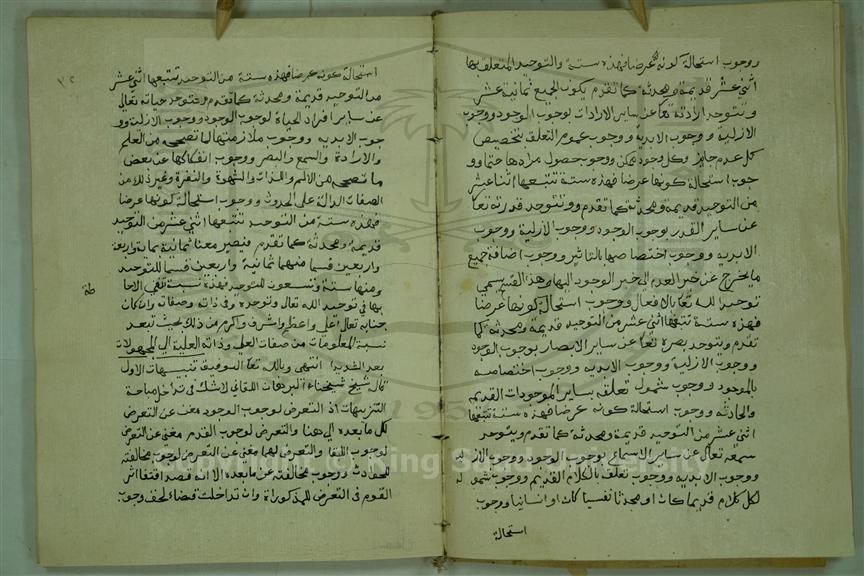 ووجوب استحالة كونه عرضا فهذه ستة والتوحيد المتعلق بها
اثنى عشر قديمة ومحدثة كما تقدم يكون الجميع ثمانية عشر
وتتوحد ارادته تعا عن ساير الارادات بوجوب الوجود ووجوب
الازلية ووجوب الابدية ووجوب عموم التعلق بتخصيص
كل عدم جايز وكل وجود ممكن ووجوب حصول مرادها حتما وو
جوب استحالة كونها عرضا فهذه ستة تتبعها اثنا عشر
من التوحيد قديمة ومحدثة كما تقدم وتتوحد قدرته تعا
عن ساير القدر بوجوب الوجود ووجوب الازلية ووجوب
الابدية ووجوب اختصاصها بالتاثير ووجوب اضافة جميع
ما يخرج عن خبر العدم الى خبر الوجود اليها وهذا القسم يسمى
توحيد الله تعا بالافعال ووجوب استحالة كونها عرضا
فهذه ستة تتبعها اثنى عشر من التوحيد قديمة ومحدثة كما
تقدم ويتوحد بصره تعا عن ساير الابصار بوجوب الوجود
ووجوب الازلية ووجوب الابدية ووجوب اختصاصه
بالموجود ووجوب شمول تعلقه بساير الموجودات القديمة
والحادثة ووجوب استحالة كونه عرضا فهذه ستة تتبعها
اثنى عشر من التوحيد قديمة ومحدثة كما تقدم ويتوحد
سمعه تعالى عن ساير الاسماع بوجوب الوجود ووجوب الازلية
ووجوب الابدية ووجوب تعلقه بالكلام القديم ووجوب شموله
لكل كلام قديما كان او محدثا نفسيا كان او لسانيا ووجوب
استحالة
استحالة كونه عرضا فهذه ستة من التوحيد تتبعها اثنى عشر
من التوحيد قديمة ومحدثة كما تقدم وتتوحد حياته تعالى
عن ساير افراد الحياة لوجوب الوجود ووجوب الازلية وو
جوب الابدية ووجوب ملازمتها لما تصححه من العلم
والارادة والسمع والبصر ووجوب انفكاكها عن بعض
ما تصححه من الالم واللذات والشهوة والنفرة وغير ذلك من
الصفات الدالة على الحدوث ووجوب استحالة كونها عرضا
فهذه ستة من التوحيد تتبعها اثنى عشر من التوحيد
قديمة ومحدثة كما تقدم فتصير معنا ثمانية بماية واربعة
واربعين قسما منها ثمانية واربعين قسما للتوحيد
ومنها ستة وتسعون للتوحيد فهذه نسبة
بها في توحيد الله تعالى وتوحده في ذاته وصفاته وان كان
جنابه تعالى اعلى واعظم واشرف واكرم من ذلك بحيث تبعد
نسبة المعلومات من صفات العلى وذاته العلية الى المجهولات
بعد انتهى وبالله تعا التوفيق تنبيهات الاول
قال شيخ شيخنا البرهان اللقاني لا شك في تداخل مباحث
التنزيهات اذ التعرض لوجوب الوجود مغن عن التعرض
لكل ما بعده الى هنا والتعرض لوجوب القدم مغنى عن التعرض
لوجوب البقا والتعرض لهما مغنى عن التعرض لوجوب مخالفته
للحوادث ووجوب مخالفته عن ما بعده الا انه قصد اقتفا اثر
القوم في التعرض للمذكورات وان تداخلت قضاء لحق وجوب
Copyright © King Saud University
1957